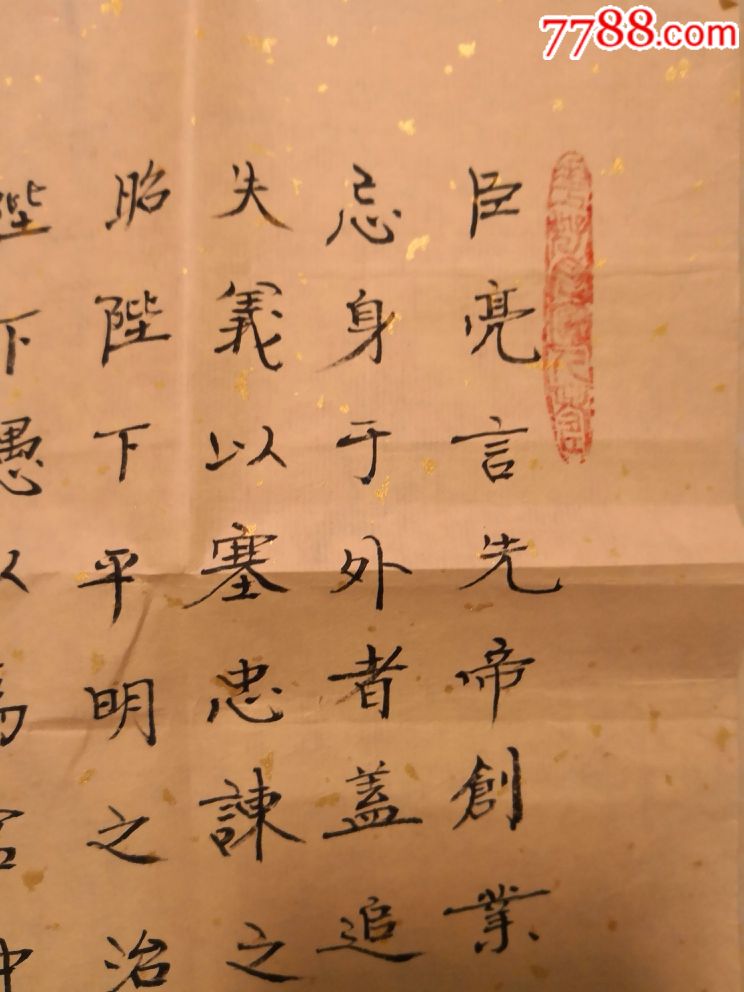 7788.com
臣亮言先帝創業
忌身于外者蓋追
失義以塞忠諫之
昭陛下平明之治
陛下愚以為宮中